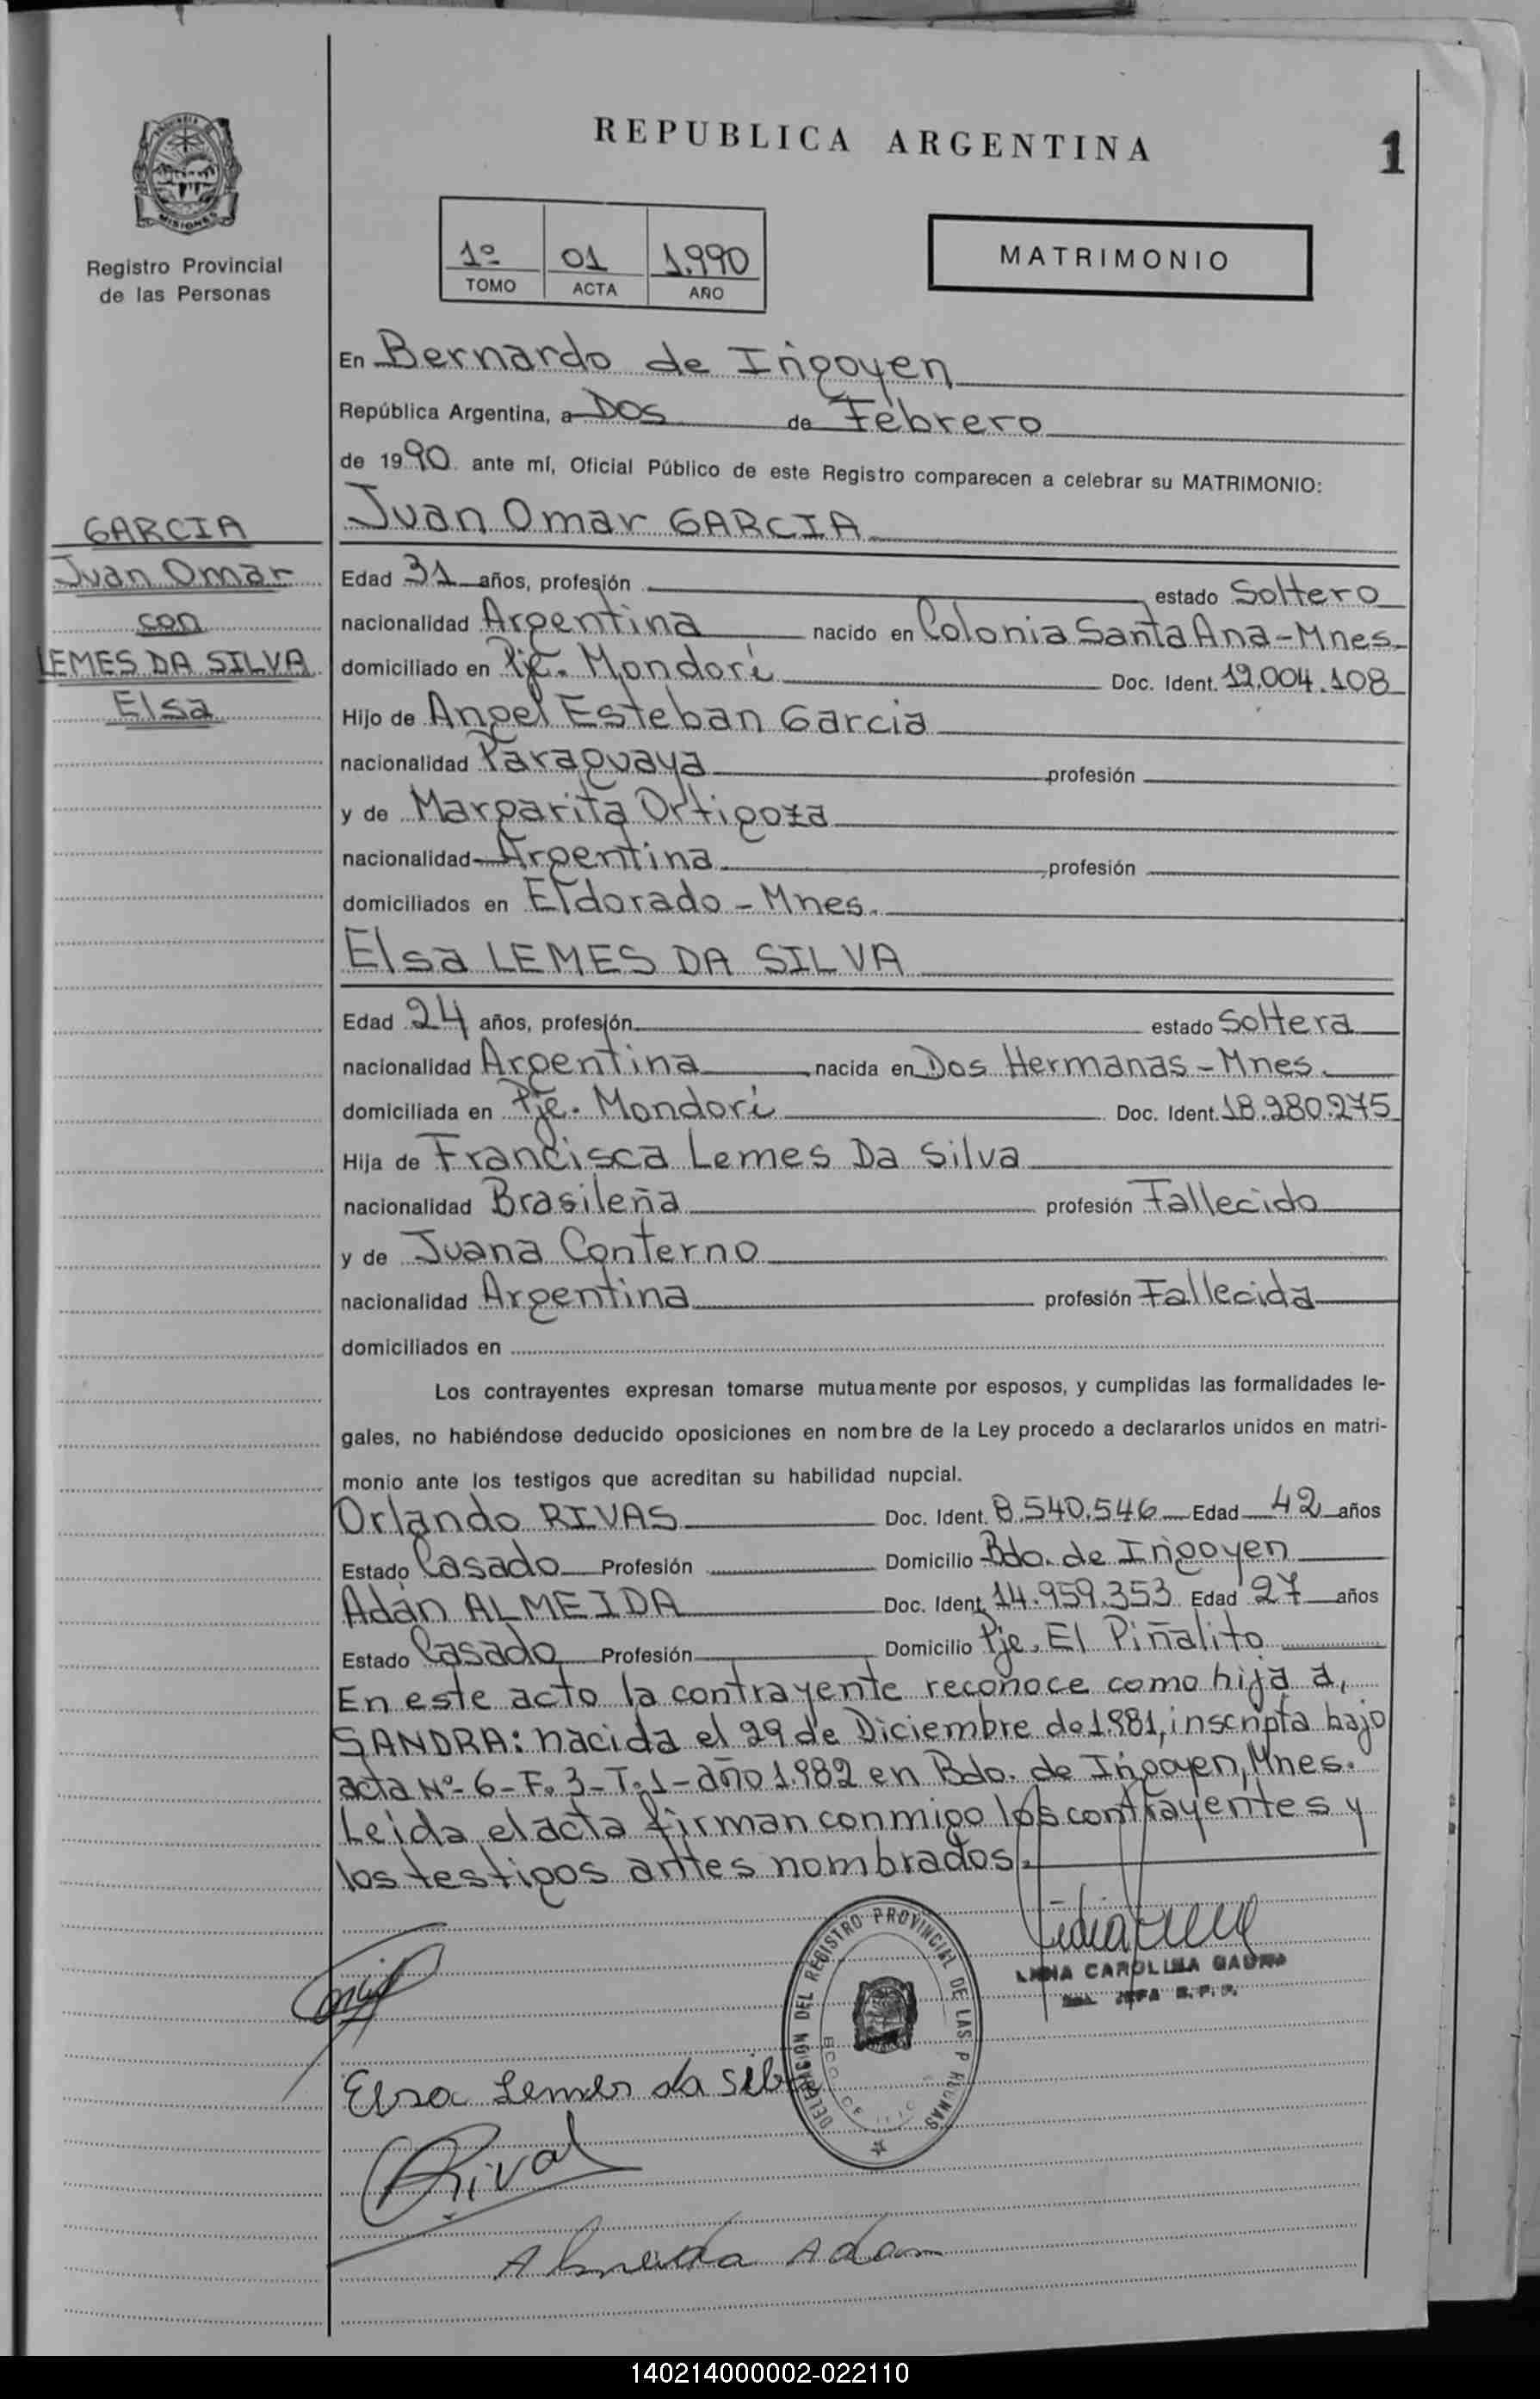 REPUBLICA ARGENTINA
1
MISIONES
Registro Provincial
de las Personas
1º 01 1.990
TOMO ACTA AÑO
MATRIMONIO
En Bernardo de Irigoyen
República Argentina, a Dos de Febrero
de 1990 ante mí, Oficial Público de este Registro comparecen a celebrar su MATRIMONIO:
GARCIA
Juan Omar
con
LEMES DA SILVA
Elsa
Juan Omar GARCIA
Edad 31 años, profesión estado Soltero
nacionalidad Argentina nacido en Colonia Santa Ana-Mnes.
domiciliado en Pje. Mondorí Doc. Ident. 12.004.108
Hijo de Angel Esteban Garcia
nacionalidad Paraguaya profesión
y de Margarita Ortigoza
nacionalidad Argentina profesión
domiciliados en Eldorado - Mnes.
Elsa LEMES DA SILVA
Edad 24 años, profesión estado Soltera
nacionalidad Argentina nacida en Dos Hermanas - Mnes.
domiciliada en Pje. Mondorí Doc. Ident. 18.280.275
Hija de Francisca Lemes Da Silva
nacionalidad Brasileña profesión Fallecido
y de Juana Conterno
nacionalidad Argentina profesión Fallecida
domiciliados en
Los contrayentes expresan tomarse mutuamente por esposos, y cumplidas las formalidades le-
gales, no habiéndose deducido oposiciones en nombre de la Ley procedo a declararlos unidos en matri-
monio ante los testigos que acreditan su habilidad nupcial.
Orlando RIVAS Doc. Ident. 8.540.546 Edad 42 años
Estado Casado Profesión Domicilio Bdo. de Irigoyen
Adán ALMEIDA Doc. Ident. 14.959.353 Edad 27 años
Estado Casado Profesión Domicilio Pje. El Piñalito
En este acto la contrayente reconoce como hija a,
SANDRA: nacida el 29 de Diciembre de 1.981, inscripta bajo
acta Nº- 6 - F. 3 - T. 1 - año 1.982 en Bdo. de Irigoyen, Mnes.
Leida el acta firman conmigo los contrayentes y
los testigos antes nombrados.
DELEGACION DEL REGISTRO PROVINCIAL DE LAS
CAROLINA
Elsa Lemes da Silva
Rivas
Almeida Adan
140214000002-022110